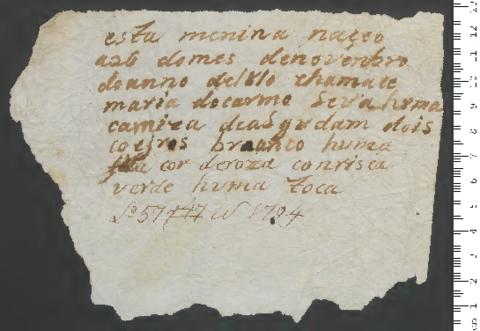 esta menina naçeo
a 26 domes denovenbro
doanno de1810 chamace
maria docarmo Leva huma
camiza dcasgvdam dois
coeiros branco huma
fita cor deroza conrisca
verde huma toca
Lo 57 1704